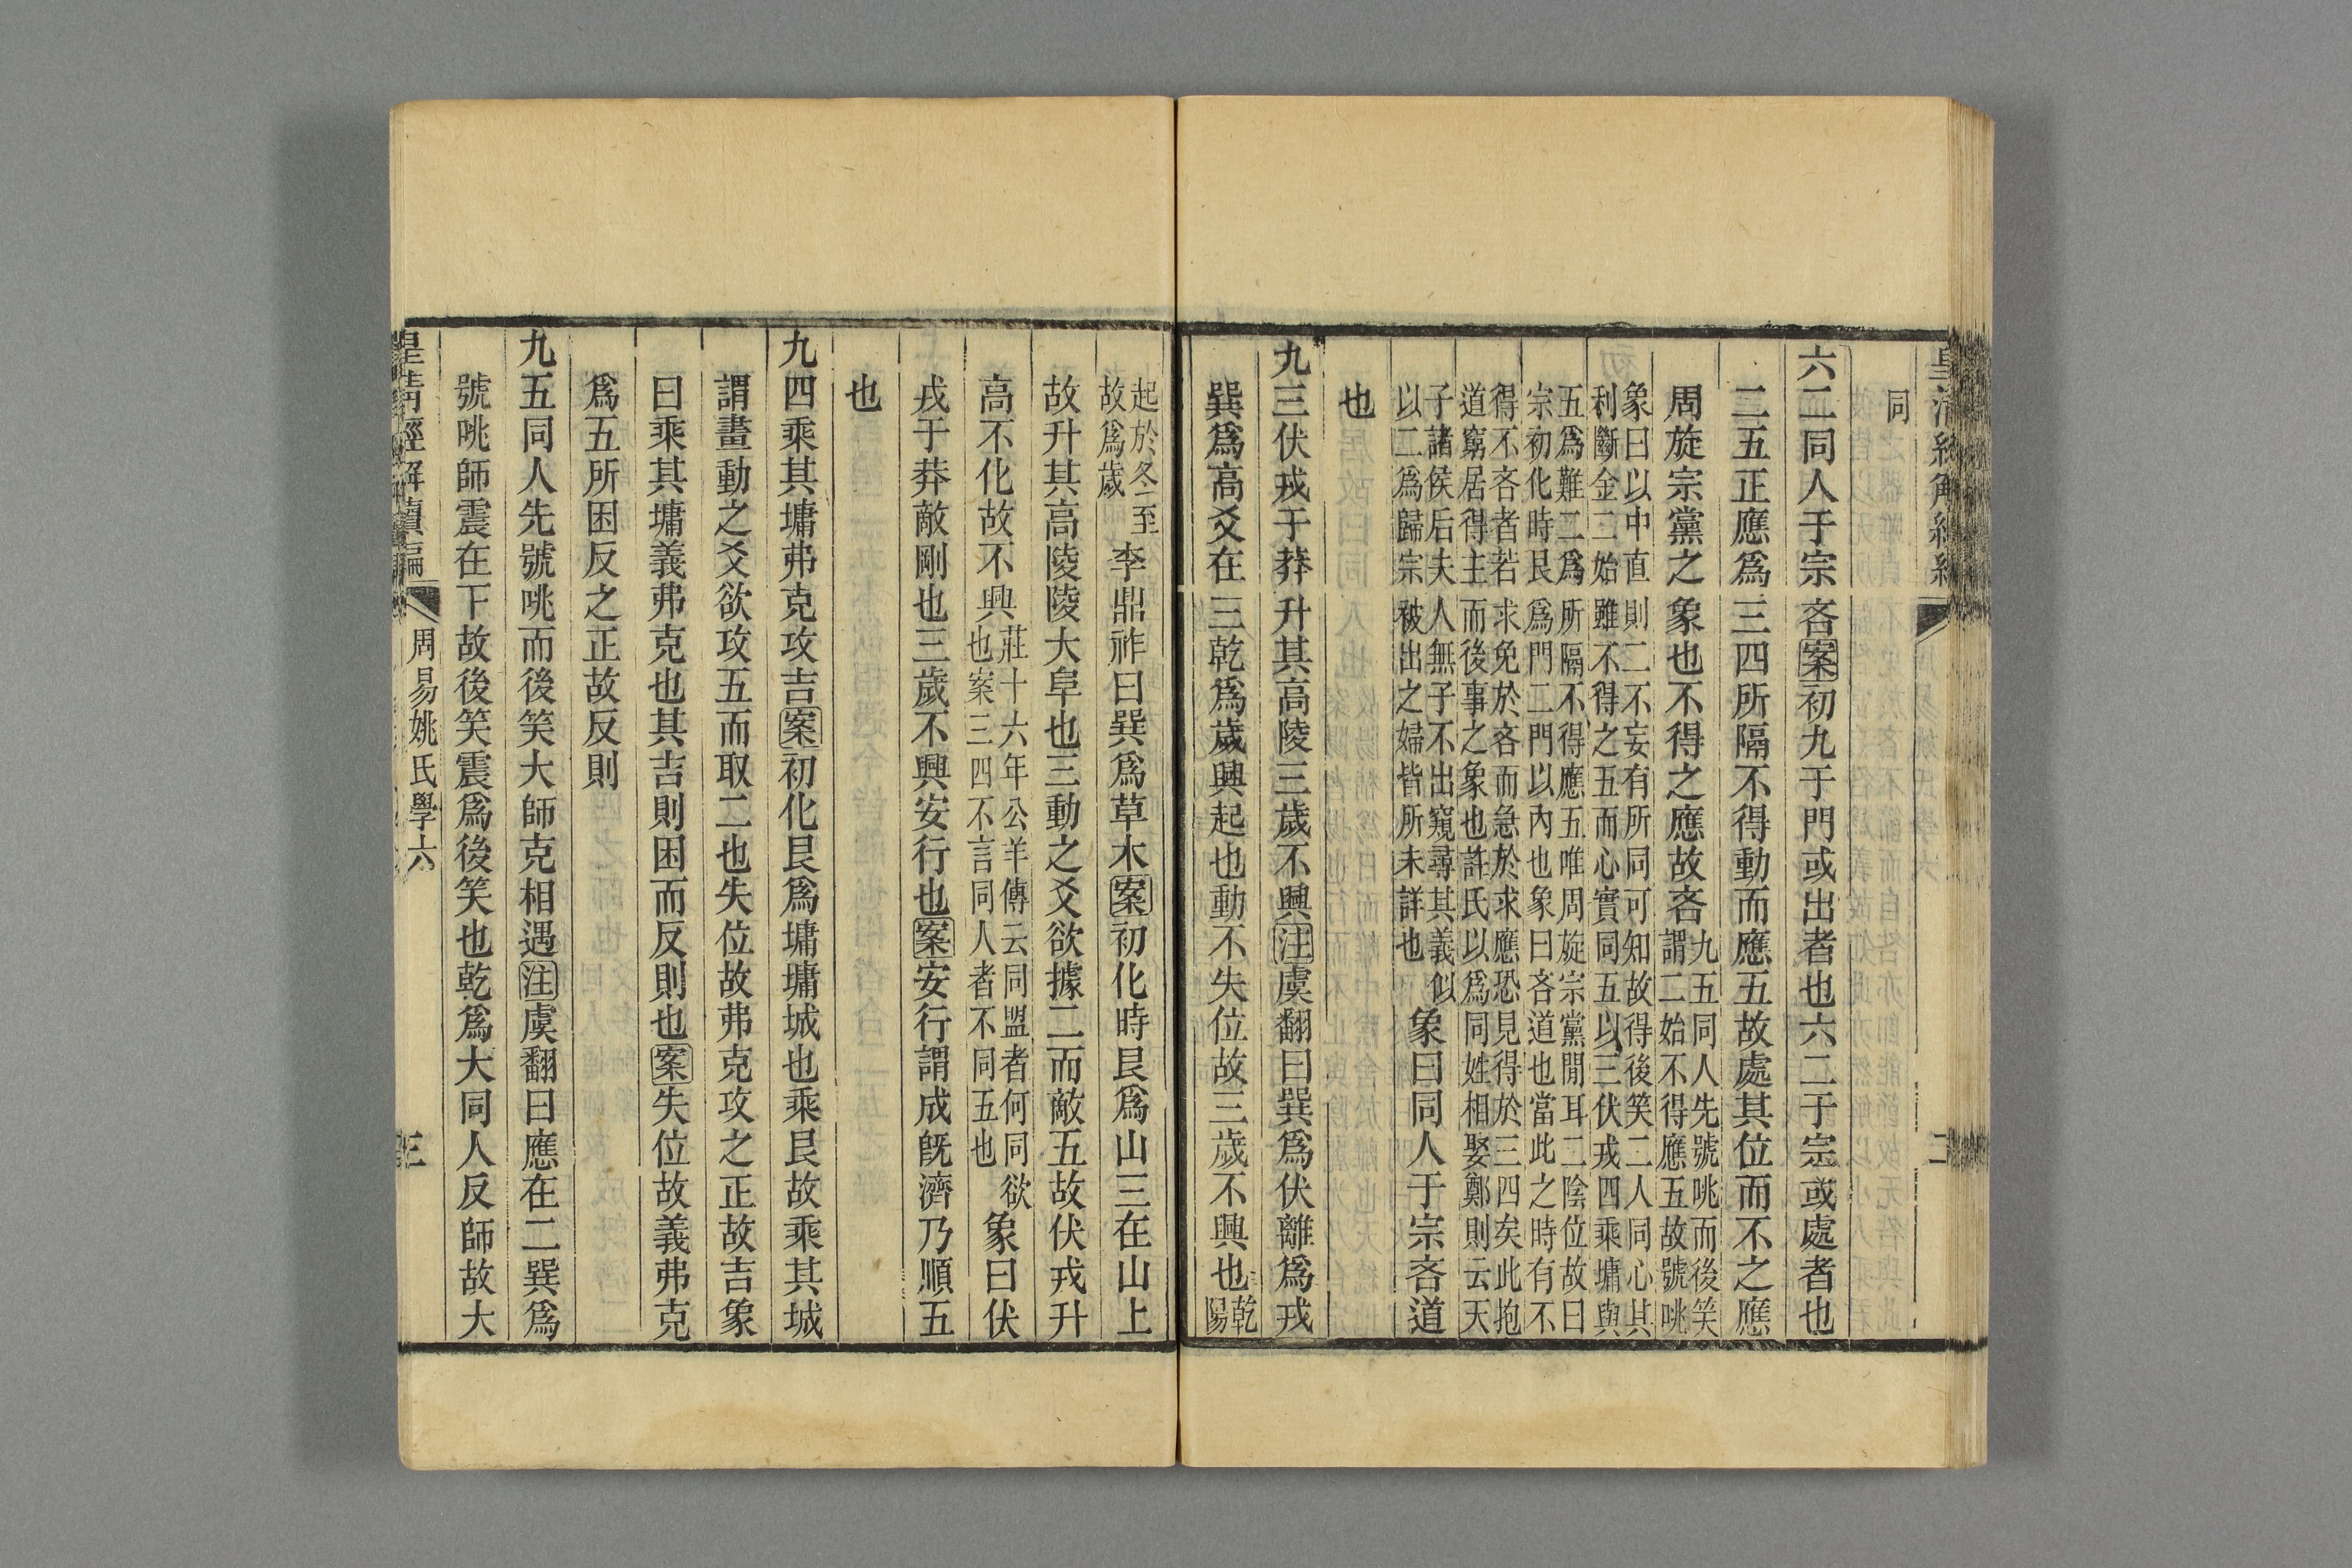 同
六二同人于宗吝案初九于門或出者也六二于宗或處者也
二五正應爲三四所隔不得動而應五故處其位而不之應
周旋宗黨之象也不得之應故吝
九五同人先號咷而後笑
謂二始不得應五故號咷
象曰以中直則二不妄有所同可知故得後笑二人同心其
利斷金二始雖不得之五而心實同五以三伏戎四乘墉與
五爲難二爲所隔不得應五唯周旋宗黨閒耳二陰位故曰
宗初化時艮爲門二門以內也象曰吝道也當此之時有不
得不吝者若求免於吝而急於求應恐見得於三四矣此抱
道窮居得主而後事之象也許氏以爲同姓相娶鄭則云天
子諸侯后夫人無子不出窺尋其義似
以二爲歸宗被出之婦皆所未詳也
象曰同人于宗吝道
也
九三伏戎于莽升其高陵三歲不興注虞翻曰巽爲伏離爲戎
巽爲高爻在三乾爲歲興起也動不失位故三歲不興也
乾
陽
起於冬至
故爲歲
李鼎祚曰巽爲草木案初化時艮爲山三在山上
故升其高陵陵大阜也三動之爻欲據二而敵五故伏戎升
高不化故不興
莊十六年公羊傳云同盟者何同欲
也案三四不言同人者不同五也
象曰伏
戎于莽敵剛也三歲不興安行也案安行謂成旣濟乃順五
也
九四乘其墉弗克攻吉案初化艮爲墉墉城也乘艮故乘其城
謂畫動之爻欲攻五而取二也失位故弗克攻之正故吉象
曰乘其墉義弗克也其吉則困而反則也案失位故義弗克
爲五所困反之正故反則
九五同人先號咷而後笑大師克相遇注虞翻曰應在二巽爲
號咷師震在下故後笑震爲後笑也乾爲大同人反師故大
皇清經解續編
周易姚氏學六
三